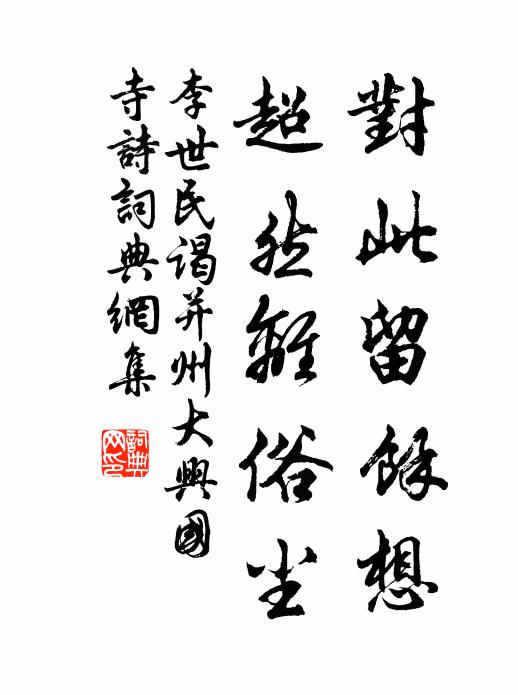 對此留餘想
超然離俗尘
李世民谒并州大興國
寺詩詞典網集
詞典网印